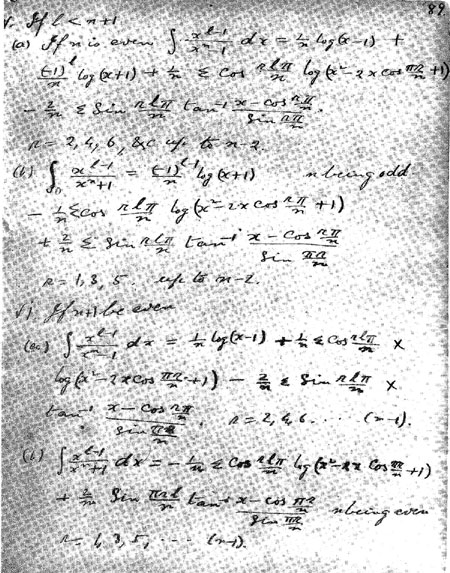 89
V. If l < n+1
(a) If n is even ∫ x^{l-1}/(x^n-1) dx = 1/n log(x-1) +
(-1)^l/n log(x+1) + 1/n Σ cos rlπ/n log(x²-2x cos πr/n +1)
- 2/n Σ sin rlπ/n tan⁻¹ (x - cos rπ/n)/(sin rπ/n).
r = 2, 4, 6, &c up to n-2.
(b) ∫₀ x^{l-1}/(x^n+1) = (-1)^{l-1}/n log(x+1) n being odd
- 1/n Σ cos rlπ/n log(x²-2x cos rπ/n +1)
+ 2/n Σ sin rlπ/n tan⁻¹ (x - cos rπ/n)/(sin πr/n)
r = 1, 3, 5. up to n-2.
Vi. If n+1 be even
(a) ∫ x^{l-1}/(x^n-1) dx = 1/n log(x-1) + 1/n Σ cos rlπ/n ×
log(x²-2x cos πr/n +1) - 2/n Σ sin rlπ/n ×
tan⁻¹ (x - cos rπ/n)/(sin πr/n). r = 2, 4, 6 .... (n-1).
(b) ∫ x^{l-1}/(x^n+1) dx = - 1/n Σ cos rlπ/n log(x²-2x cos πr/n +1)
+ 2/n sin πrl/n tan⁻¹ (x - cos πr/n)/(sin πr/n) n being even
r = 1, 3, 5, .... (n-1).